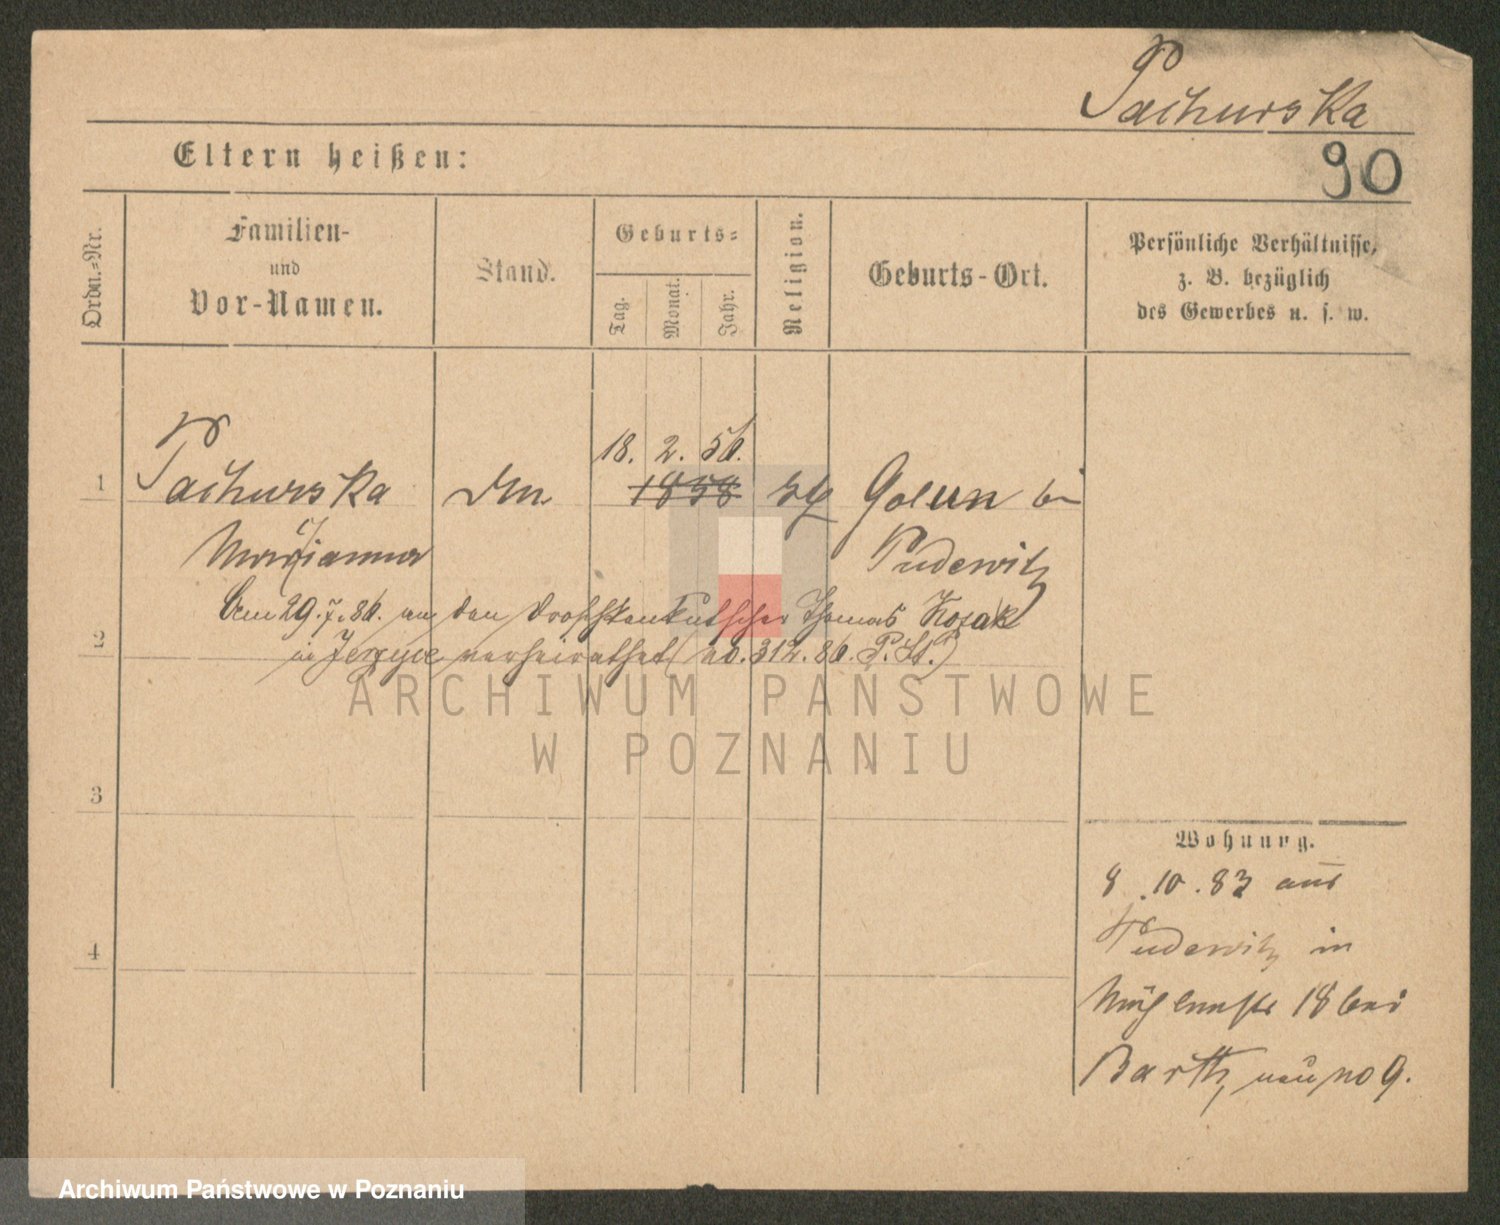 Pachurska
90
Eltern heißen:
Ordn.-Nr.
Familien-
und
Vor-Namen.
Stand.
Geburts-
Tag.
Monat.
Jahr.
Religion.
Geburts-Ort.
Persönliche Verhältnisse,
z. B. bezüglich
des Gewerbes u. s. w.
18. 2. 56.
1 Pachurska 1858 Golun bei
Marianna Pudewitz
Am 29.7.86. an den Droschkenkutscher Thomas Kozak
2
in Jerzyce verheirathet (no. 312. 86. P. St.)
ARCHIWUM PAŃSTWOWE
W POZNANIU
3
Wohnung.
8.10.83 aus
4
Pudewitz in
Mühlenstr 18 bei
Barth, neu no 9.
Archiwum Państwowe w Poznaniu